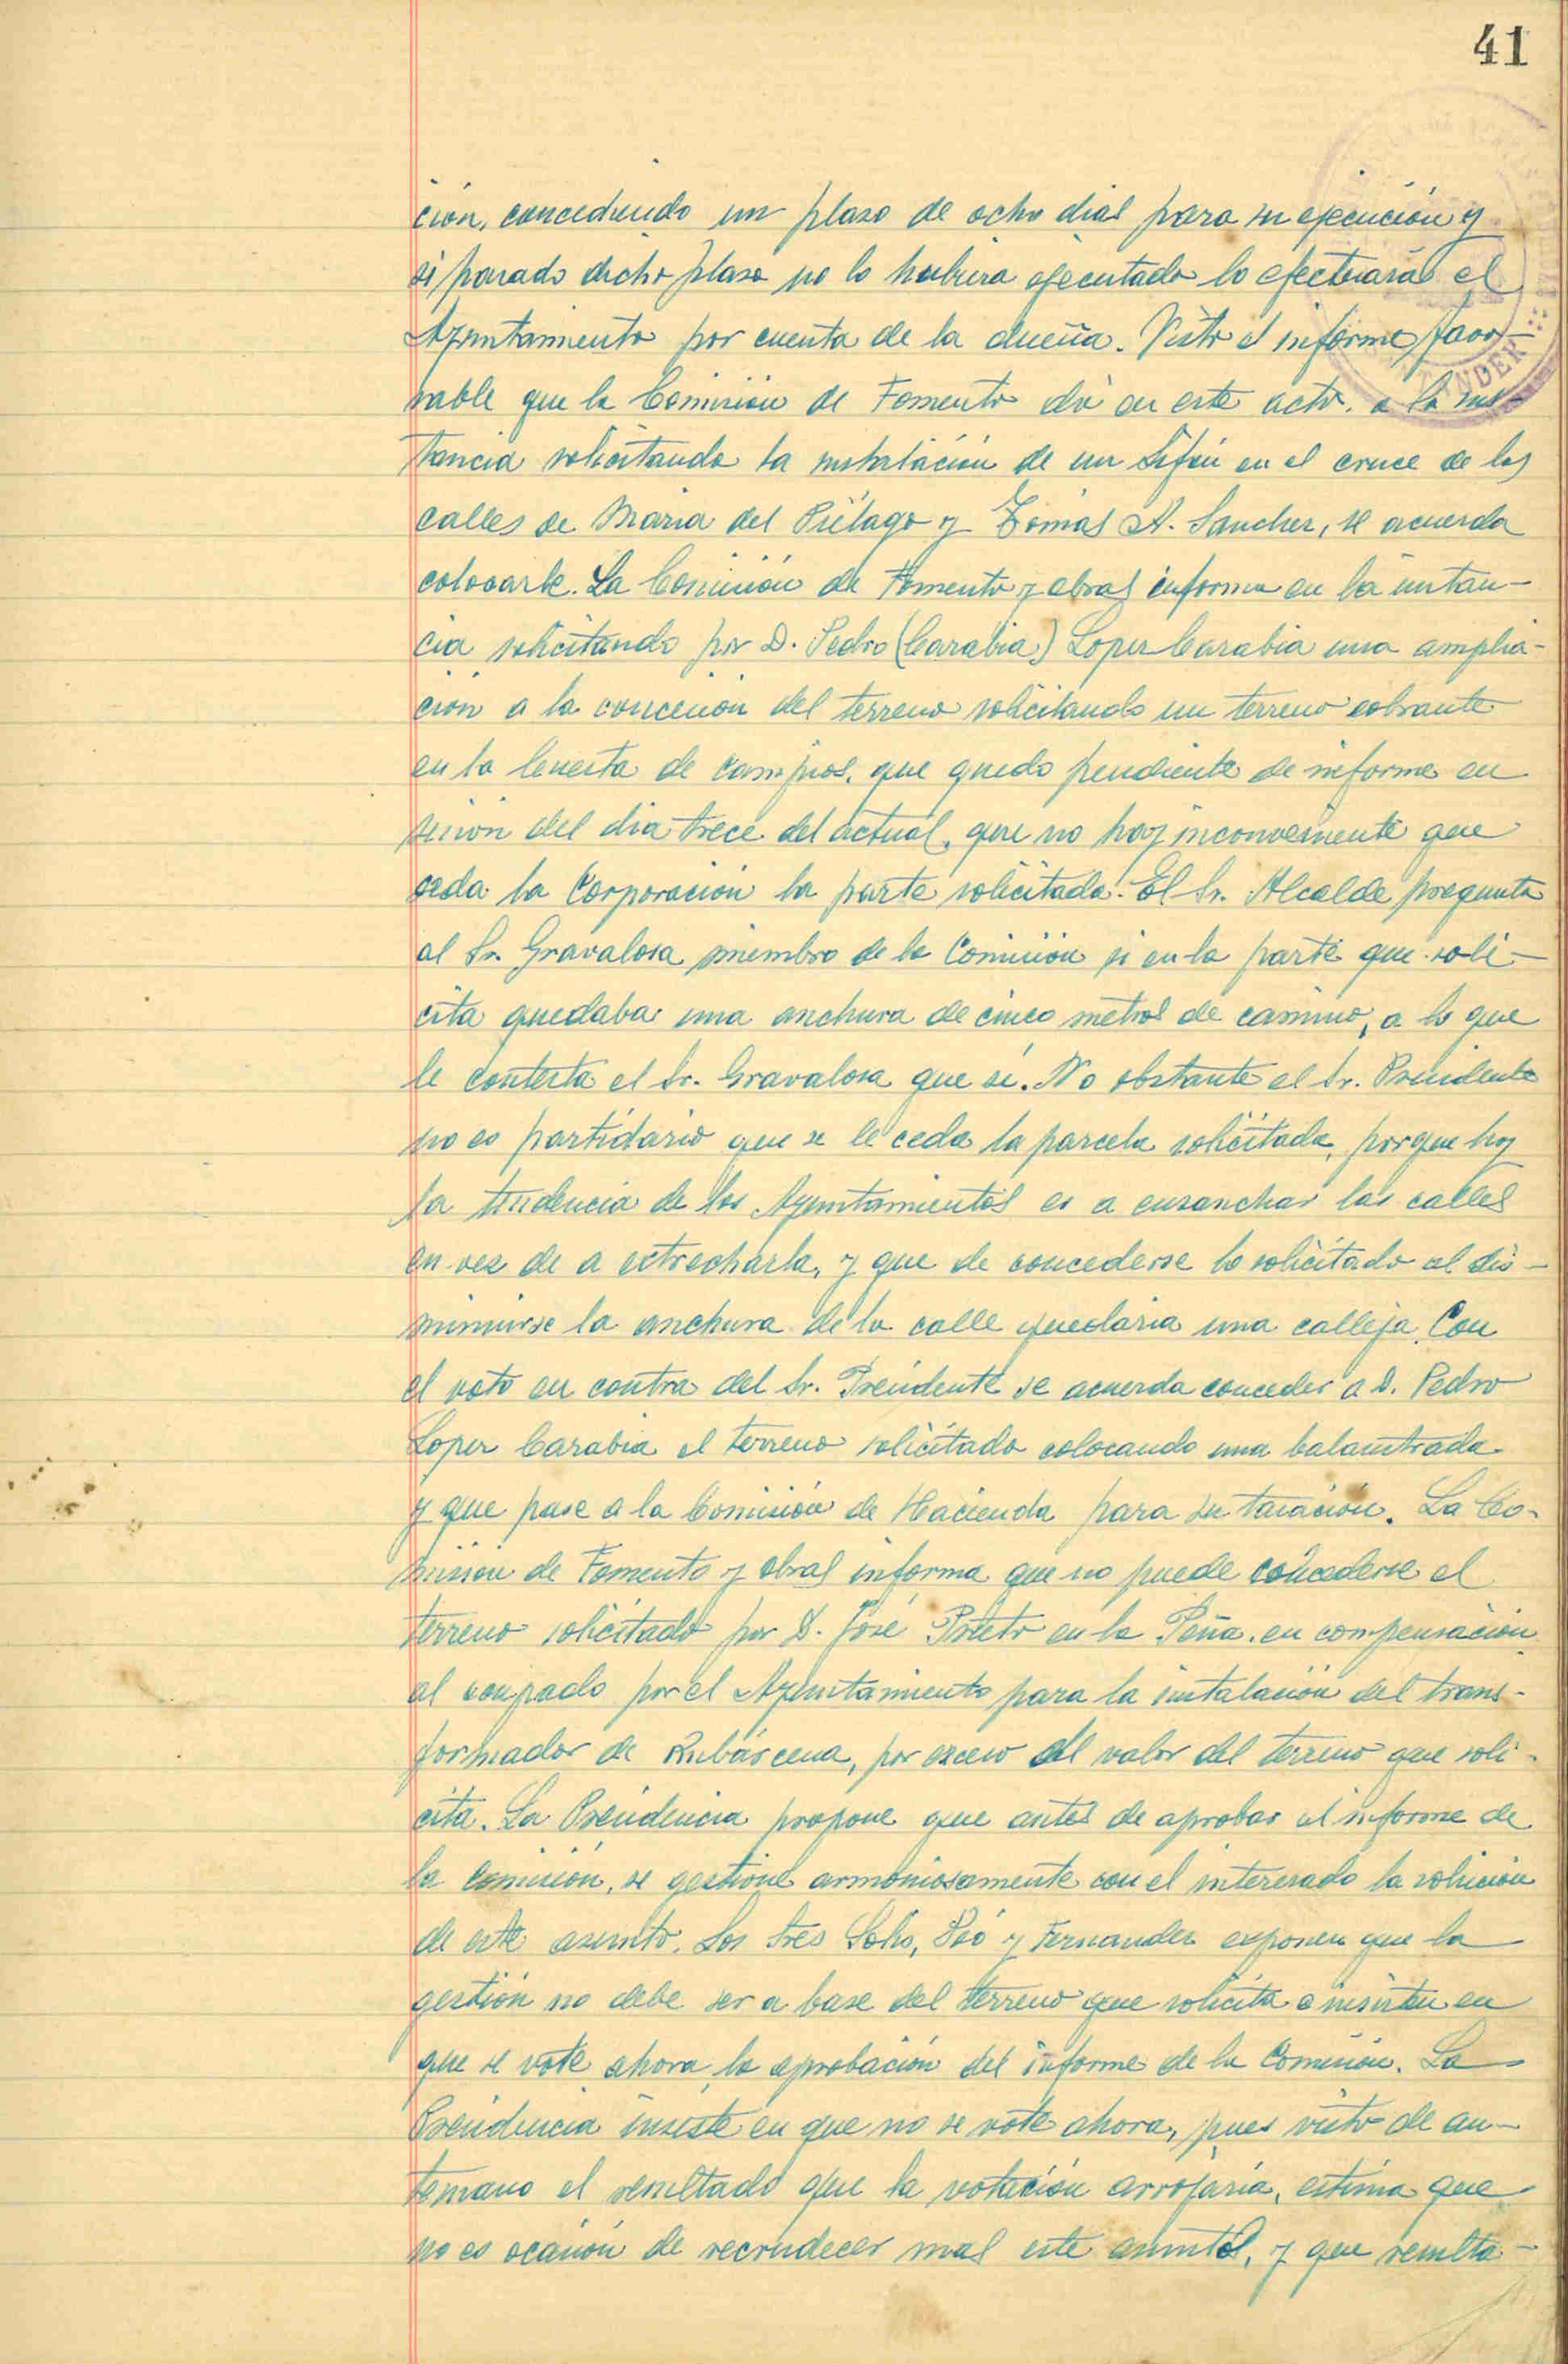 41
ción, concediendo un plazo de ocho dias para su ejecución y
si pasado dicho plazo no lo hubiera ejecutado lo efectuará el
Ayuntamiento por cuenta de la dueña. Visto el informe favo-
rable que la Comisión de Fomento dá en este acto, a la ins-
tancia solicitando la instalación de un Sifón en el cruce de las
calles de Maria del Piélago y Tomás A. Sanchez, se acuerda
colocarle. La Comisión de Fomento y obras informa en la instan-
cia solicitando por D. Pedro (Carabia) Lopez Carabia una amplia-
ción a la concesión del terreno solicitando un terreno sobrante
en la Cuesta de Campios, que quedo pendiente de informe en
sesion del dia trece del actual, que no hay inconveniente que
ceda la Corporación la parte solicitada. El Sr. Alcalde pregunta
al Sr. Gravalosa miembro de la Comisión si en la parte que soli-
cita quedaba una anchura de cinco metros de camino, a lo que
le contesta el Sr. Gravalosa que sí. No obstante el Sr. Presidente
no es partidario que se le ceda la parcela solicitada, porque hoy
la tendencia de los Ayuntamientos es a ensanchar las calles
en vez de a estrecharla, y que de concederse lo solicitado al dis-
minuirse la anchura de la calle quedaria una calleja. Con
el voto en contra del Sr. Presidente se acuerda conceder a D. Pedro
Lopez Carabia el terreno solicitado colocando una balaustrada
y que pase a la Comisión de Hacienda para su tasación. La Co-
misión de Fomento y obras informa que no puede concederse el
terreno solicitado por D. José Prieto en la Peña, en compensación
al ocupado por el Ayuntamiento para la instalación del trans-
formador de Rubárcena, por exceso del valor del terreno que soli-
cita. La Presidencia propone que antes de aprobar el informe de
la comisión, se gestione armoniosamente con el interesado la solución
de este asunto. Los sres Solis, Poó y Fernandez exponen que la
gestión no debe ser a base del terreno que solicita e insisten en
que se vote ahora la aprobación del informe de la Comisión. La
Presidencia insiste en que no se vote ahora, pues visto de an-
temano el resultado que la votación arrojaria, estima que
no es ocasión de recrudecer mas este asunto, y que resulta-